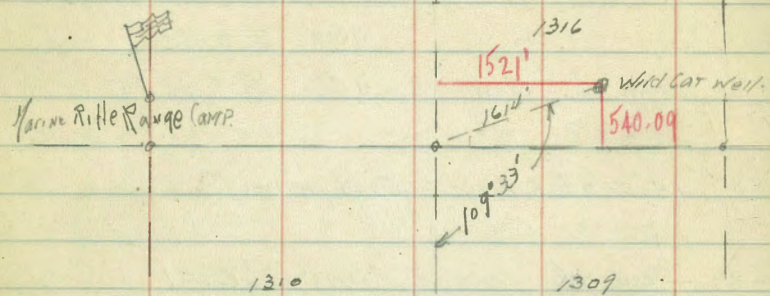 1316
1521'
Wild Cat Well.
1614'
Marine Rifle Range Camp.
540.09
109°33'
1310
1309